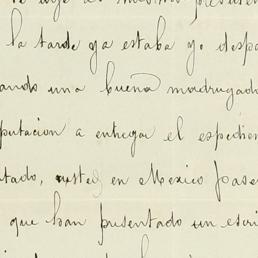 la tarde ya estaba yo despa
ando una buena madrugado
putacion a entregar el espedien
tado, usted en Mexico pase
que han presentado un escri